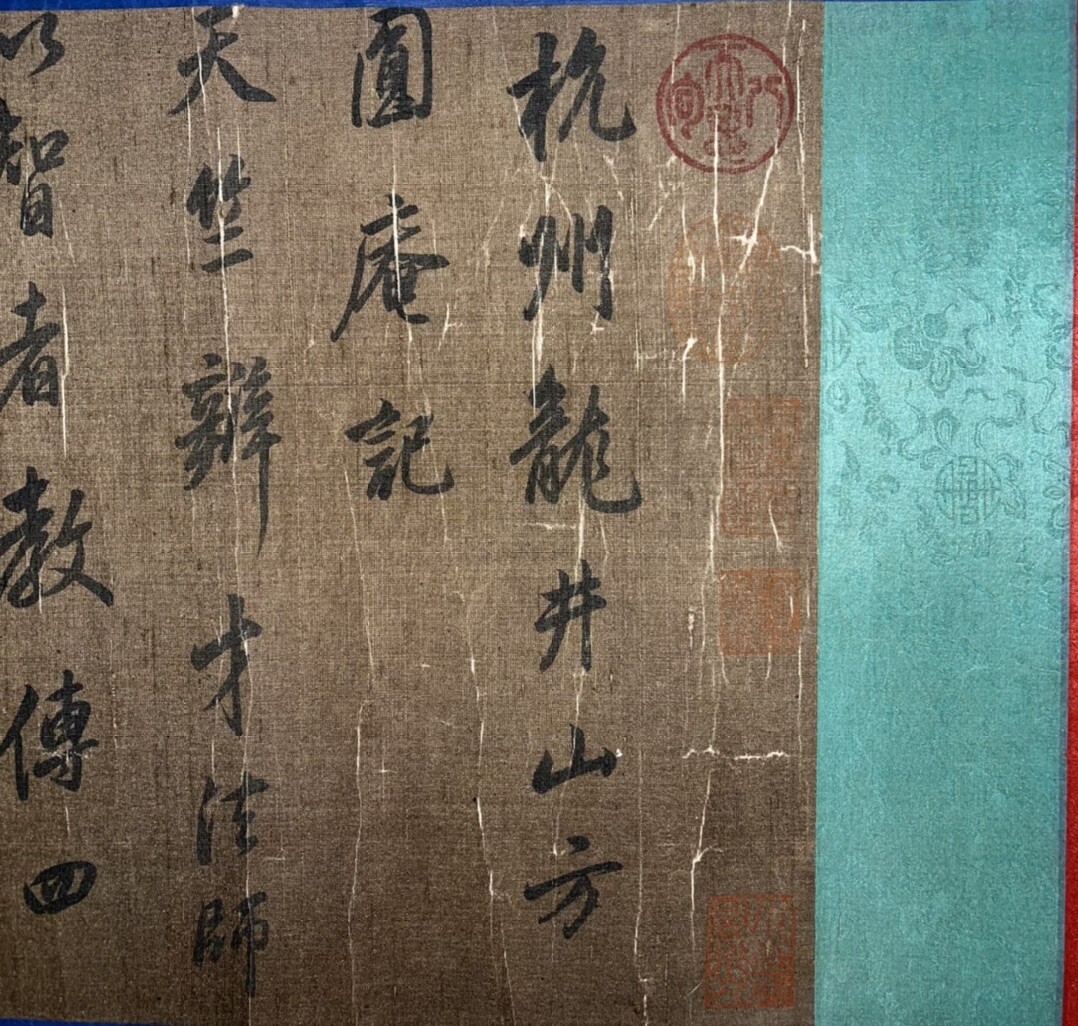 杭州龍井山方
圓庵記
天竺辯才法師
以智者教傳四